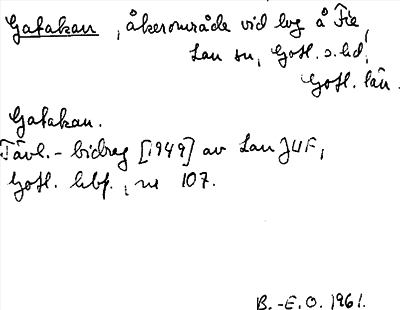 Gatakan, åkerområde vid lbg å Fie,
Lau sn, Gotl. s. hd,
Gotl. län.
Gatakan.
Tävl.-bidrag [1949] av Lau JUF,
Gotl. hbf., nr 107.
B.-E.O. 1961.